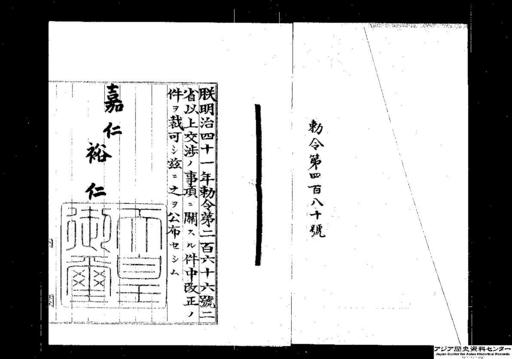 勅令第四百八十號
朕明治四十一年勅令第二百六十六號二
省以上交渉ノ事項ニ關スル件中改正ノ
件ヲ裁可シ茲ニ之ヲ公布セシム
嘉仁
裕仁
天皇
御璽
アジア歴史資料センター
Japan Center for Asian Historical Records